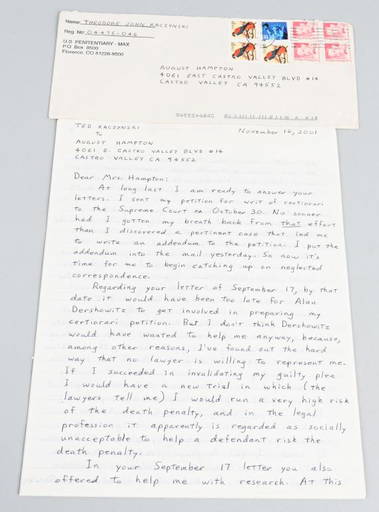 Name: THEODORE JOHN KACZYNSKI
Reg. No: 04475-046
U.S. PENITENTIARY - MAX
P.O. Box 8500
Florence, CO 81226-8500
AUGUST HAMPTON
4061 EAST CASTRO VALLEY BLVD #14
CASTRO VALLEY CA 94552
TED KACZYNSKI
TO
AUGUST HAMPTON
4061 E. CASTRO VALLEY BLVD #14
CASTRO VALLEY CA 94552
November 16, 2001
Dear Mrs. Hampton:
At long last I am ready to answer your
letters. I sent my petition for writ of certiorari
to the Supreme Court on October 30. No sooner
had I gotten my breath back from that effort
than I discovered a pertinent case that led me
to write an addendum to the petition. I put the
addendum into the mail yesterday. So now it's
time for me to begin catching up on neglected
correspondence.
Regarding your letter of September 17, by that
date it would have been too late for Alan
Dershowitz to get involved in preparing my
certiorari petition. But I don't think Dershowitz
would have wanted to help me anyway, because,
among other reasons, I've found out the hard
way that no lawyer is willing to represent me.
If I succeeded in invalidating my guilty plea
I would have a new trial in which (the
lawyers tell me) I would run a very high risk
of the death penalty, and in the legal
profession it apparently is regarded as socially
unacceptable to help a defendant risk the
death penalty.
In your September 17 letter you also
offered to help me with research. At this